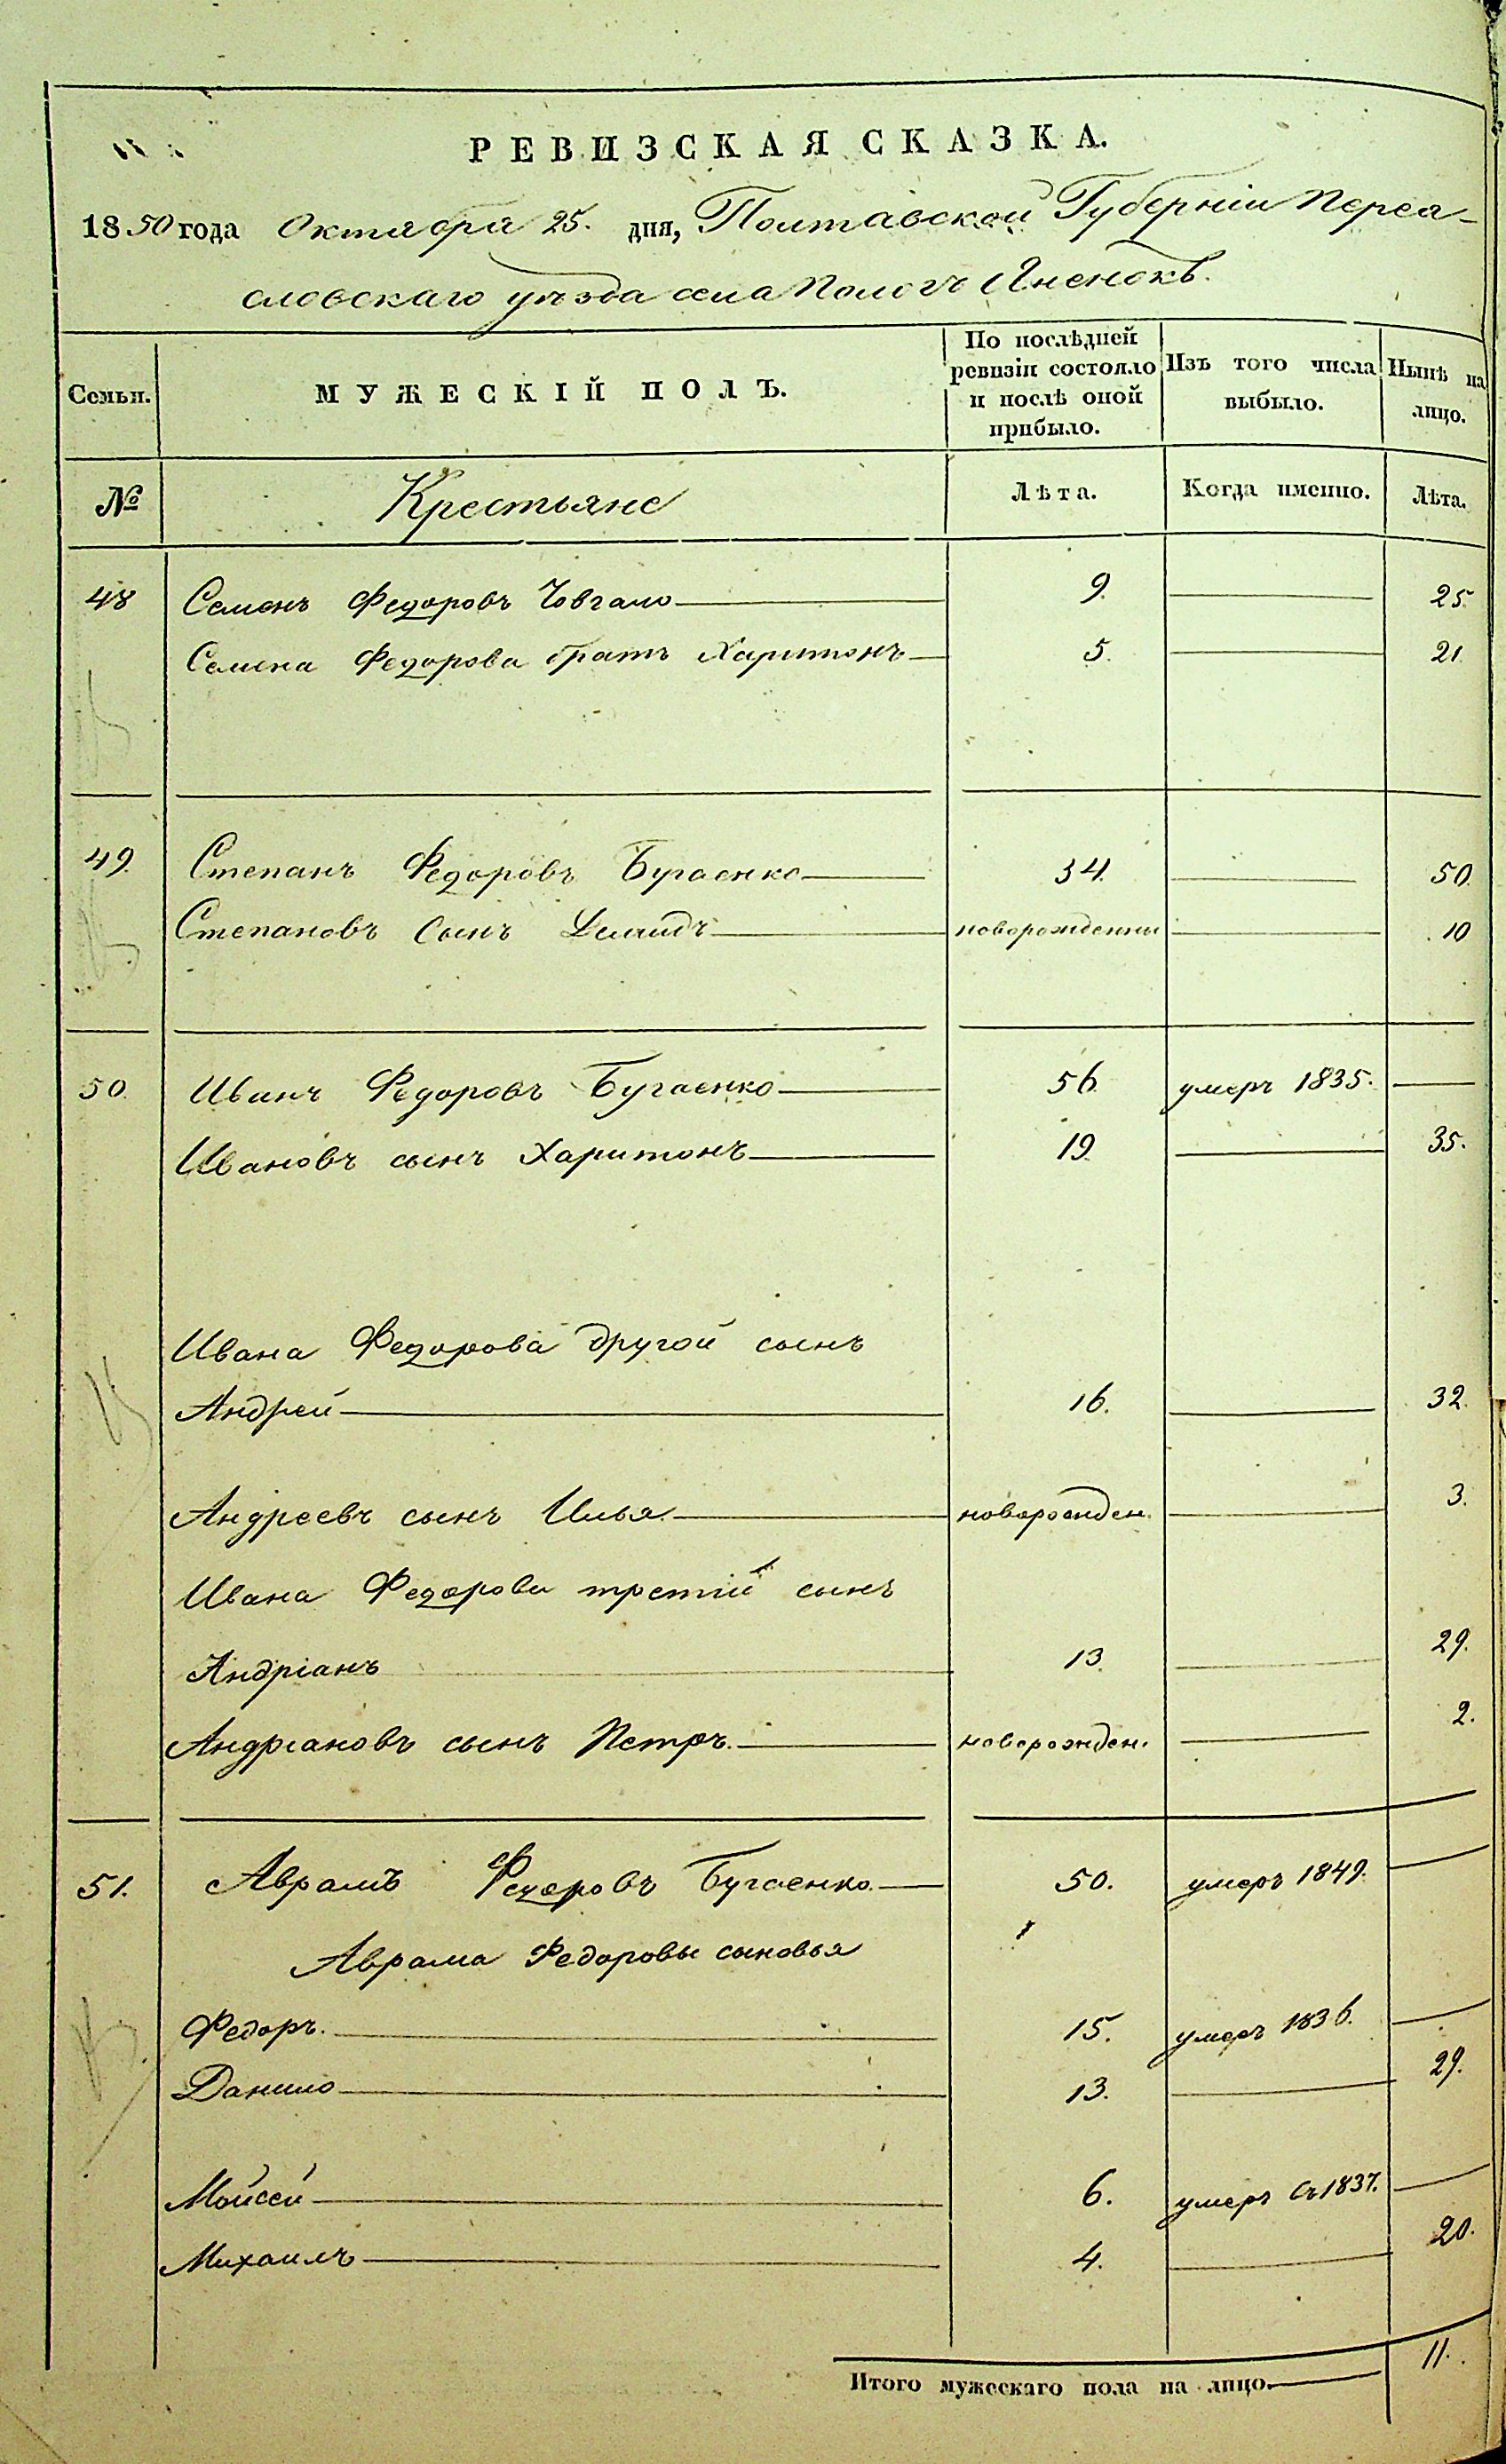 РЕВИЗСКАЯ СКАЗКА.
1850 года Октября 25. дня, Полтавской Губерніи Перея-
словскаго уѣзда села Пологъ Яненокъ.
Семьи. МУЖЕСКІЙ ПОЛЪ. По послѣдней ревизіи состояло и послѣ оной прибыло. Изъ того числа выбыло. Нынѣ на лицо.
№ Крестьяне Лѣта. Когда именно. Лѣта.
48 Семенъ Федоровъ Човгало 9. 25.
Семена Федорова братъ Харитонъ 5. 21.
49. Степанъ Федоровъ Бугаенко 34. 50.
Степановъ Сынъ новорожденны 10
50. Иванъ Федоровъ Бугаенко 56. умеръ 1835.
Ивановъ сынъ Харитонъ 19. 35.
Ивана Федорова другой сынъ
Андрей 16. 32.
Андреевъ сынъ Илья новорожден. 3.
Ивана Федорова третій сынъ
Андріанъ 13. 29.
Андріановъ сынъ Петръ. новорожден. 2.
51. Аврамъ Федоровъ Бугаенко. 50. умеръ 1849.
Аврама Федоровы сыновья
Федоръ. 15. умеръ 1836.
Данило 13. 29.
Мойсей 6. умеръ съ 1837.
Михаилъ 4. 20.
Итого мужескаго пола на лицо. 11.